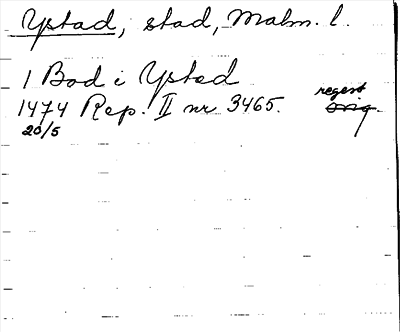 Ystad, stad, Malm. l.
I Bod i Ystad
1474 Rep. II nr 3465. regest
20/5 orig.